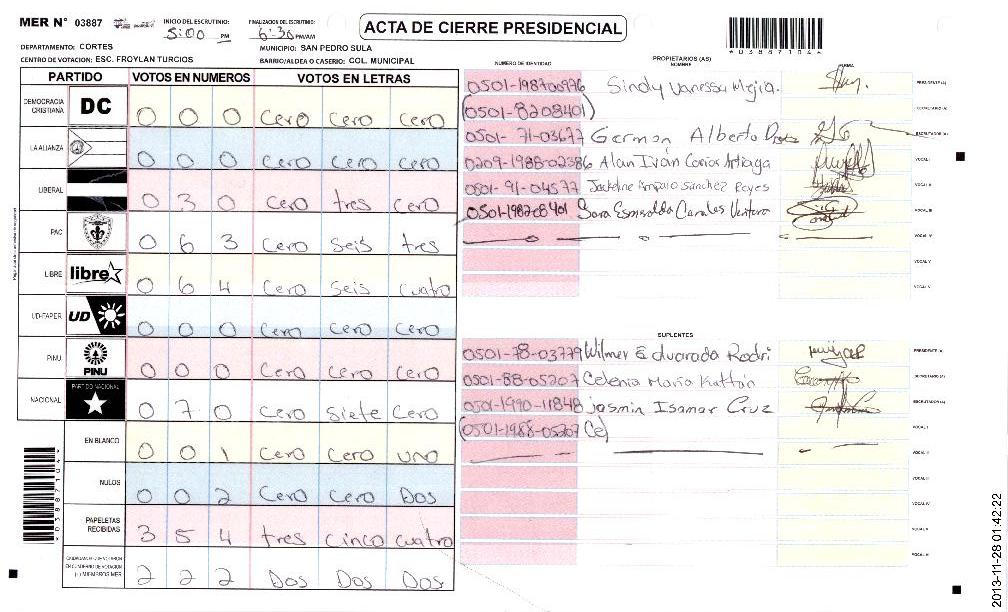 MER N° 03887
INICIO DEL ESCRUTINIO: 5:00 PM
FINALIZACION DEL ESCRUTINIO: 6:30 PM/AM
ACTA DE CIERRE PRESIDENCIAL
*03887104*
DEPARTAMENTO: CORTES
MUNICIPIO: SAN PEDRO SULA
CENTRO DE VOTACION: ESC. FROYLAN TURCIOS
BARRIO/ALDEA O CASERIO: COL. MUNICIPAL
PARTIDO VOTOS EN NUMEROS VOTOS EN LETRAS
DEMOCRACIA CRISTIANA DC 0 0 0 Cero Cero Cero
LA ALIANZA 0 0 0 Cero Cero Cero
LIBERAL 0 3 0 Cero tres Cero
PAC 0 6 3 Cero Seis tres
LIBRE libre 0 6 4 Cero Seis Cuatro
UD-FAPER UD 0 0 0 Cero Cero Cero
PINU PINU 0 0 0 Cero Cero Cero
NACIONAL PARTIDO NACIONAL 0 7 0 Cero Siete Cero
EN BLANCO 0 0 1 Cero Cero uno
NULOS 0 0 2 Cero Cero Dos
PAPELETAS RECIBIDAS 3 5 4 tres Cinco cuatro
2 2 2 Dos Dos Dos
NUMERO DE IDENTIDAD
PROPIETARIOS (AS)
NOMBRE
FIRMA
0501-198700976 Sindy Vanessa Mejia. PRESIDENTE (A)
(0501-8208401) SECRETARIO (A)
0501-71-03677 German Alberto ESCRUTADOR (A)
0209-1988-02386 Alan Iván VOCAL I
0801-91-04577 Jackeline Amparo Sanchez Reyes VOCAL II
0501-198208401 Sara Esmeralda Canales Ventura VOCAL III
VOCAL IV
VOCAL V
VOCAL VI
SUPLENTES
0501-78-03779 Wilmer Eduardo Rodri PRESIDENTE (A)
0501-88-05207 Celenia María Kattán SECRETARIO (A)
0501-1990-11848 Jasmin Isamar Cruz ESCRUTADOR (A)
(0501-1988-05207 Ce) VOCAL I
VOCAL II
VOCAL III
VOCAL IV
VOCAL V
VOCAL VI
*03887104*
2013-11-28 01:42:22